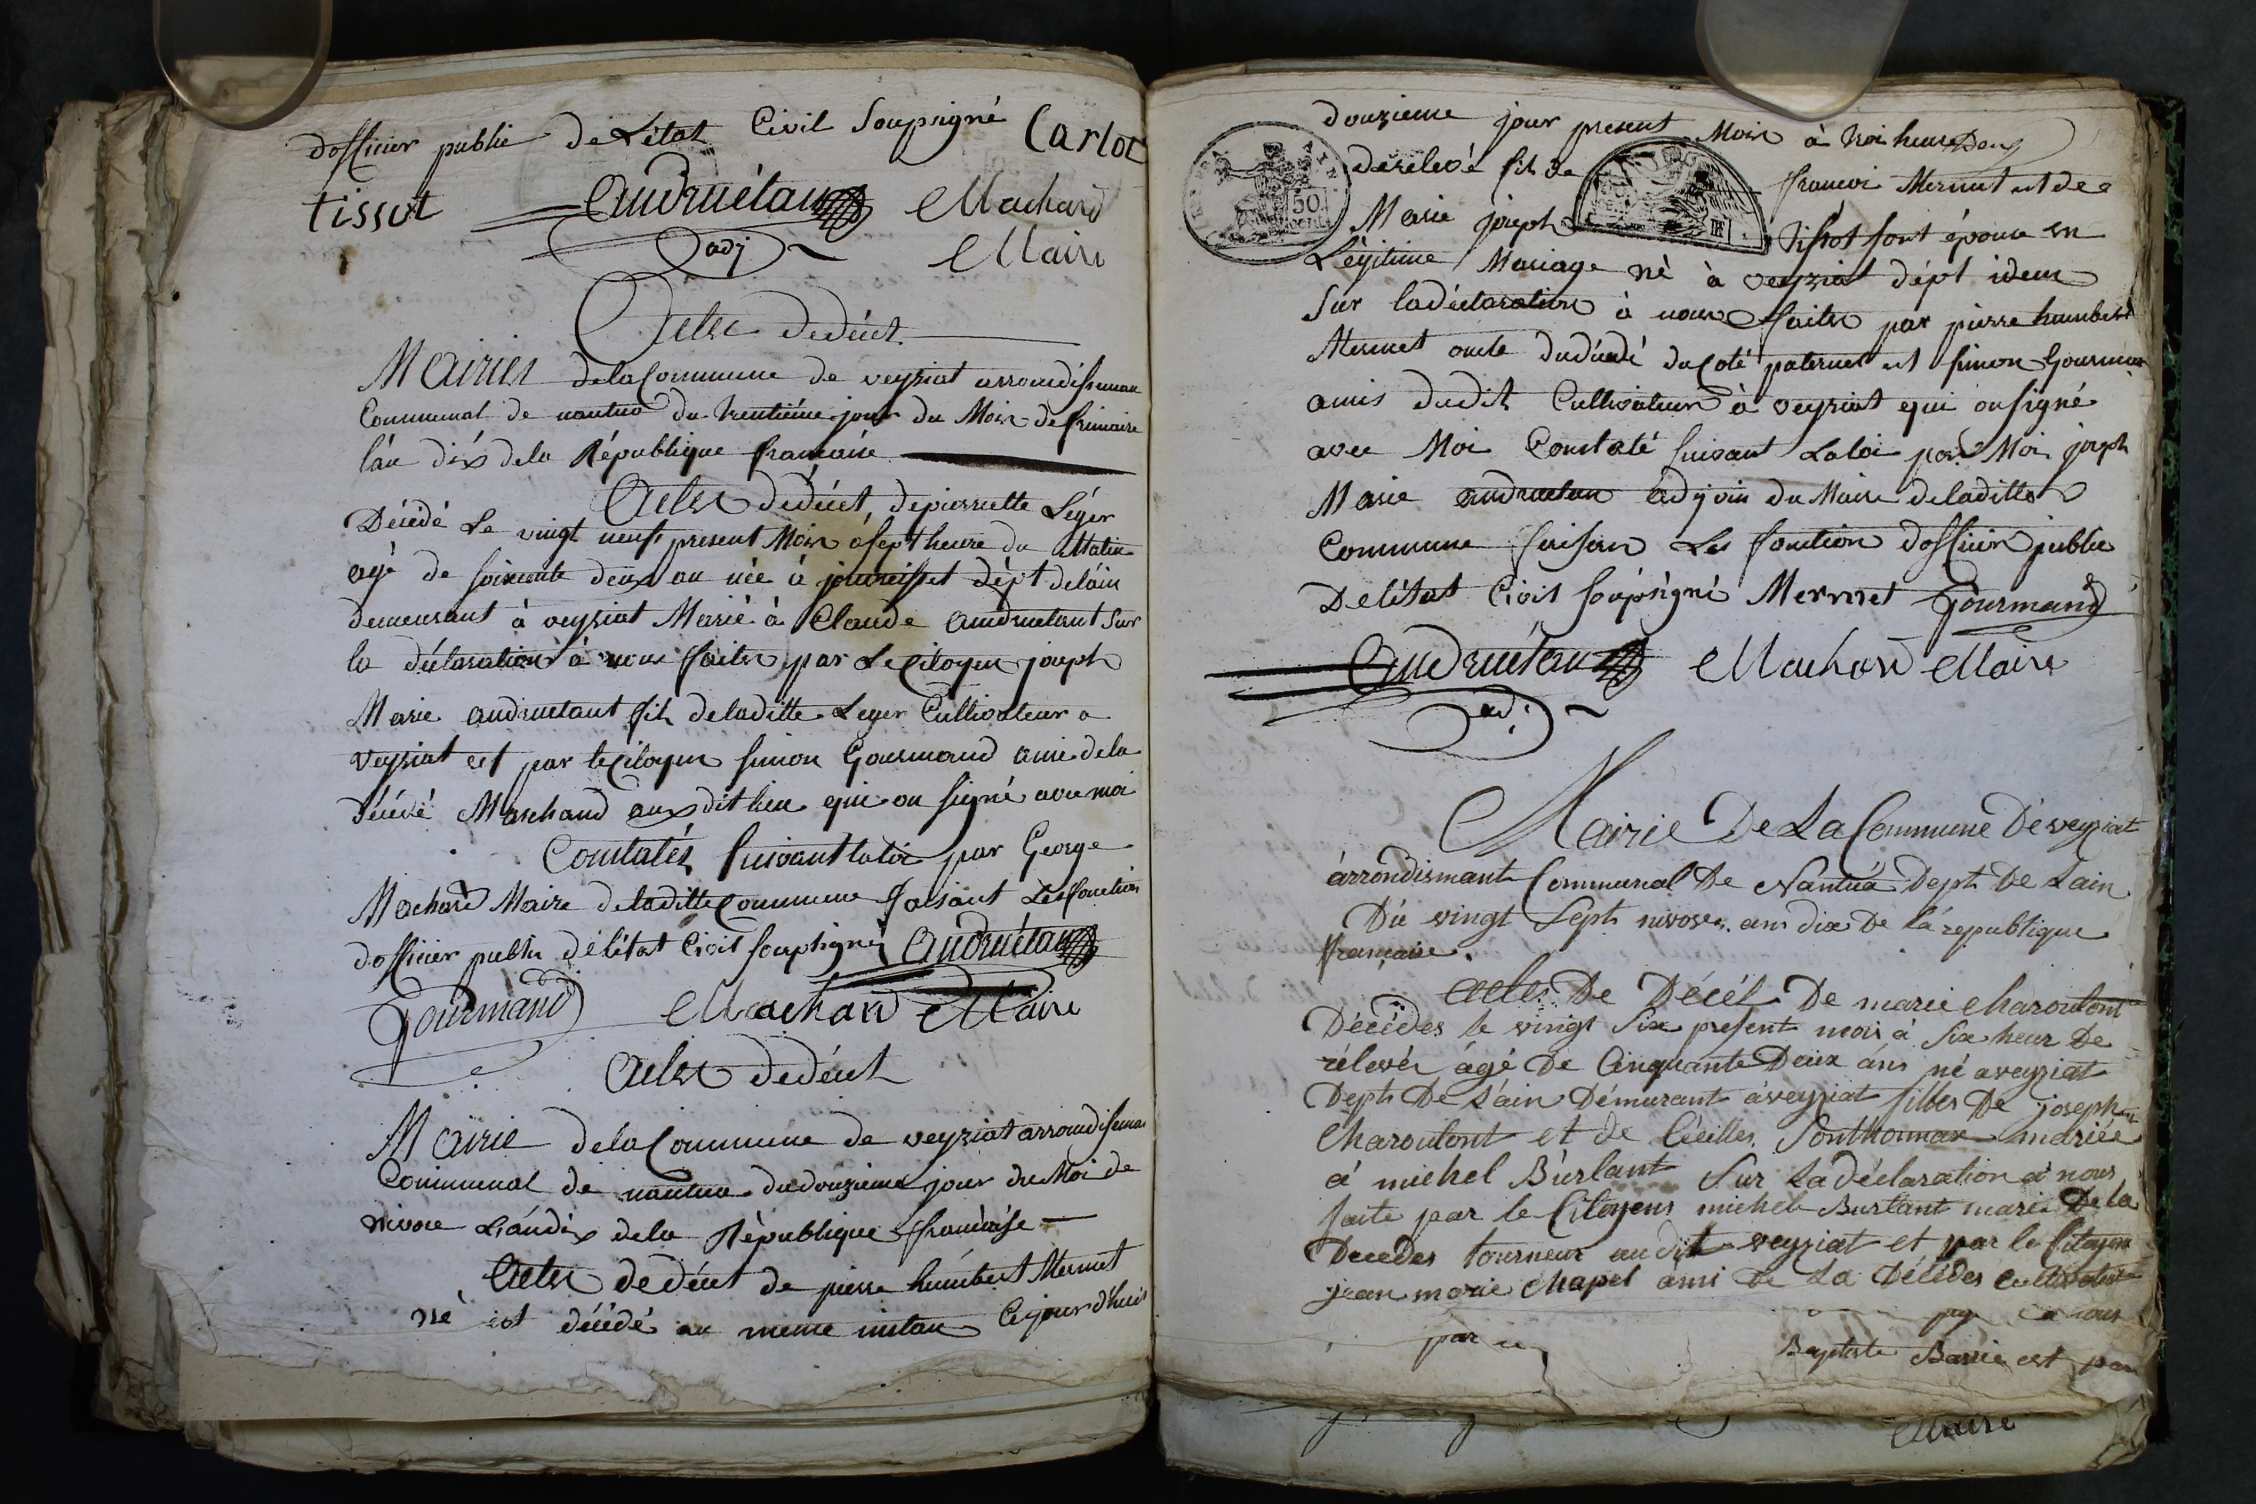 dofficier public de Létat Civil Soupsigné Carlot
tissot Andruétan Machard
adj Maire
Actes dedécet
Mairies delaCommune de veyziat arrondissemen
Communal de nantua du trentiéme jour du Mois defrimaire
l'án dix dela République francaise
Actes dedécet, depierrette Léger
Décédé Le vingt neuf present Mois à sept heure du Matin
agé de soixante deux an née à jeurreisset dépt delàin
demeurant à veyziat Marié à Claude Andruetant Sur
la déclaration à nous faites par Lecitoyen joseph
Marie andruetant fils deladitte Leger Cultivateur a
veyziat et par lecitoyen simon Gourmand amie dela
décédé Marchand audit lieu qui on signé avec moi
Constatés suivant laloi par George
Machard Maire deladitte Commune faisant Les fonction
dofficier public delétat Civil soupsigné Andruétan
Gourmand Machard Maire
Actes dedécet
Mairie delaCommune de veyziat arrondissemen
Communal de nantua dudouzieme jour du Moi de
nivose L'andix dela République francaise
Actes dedécet de pierre humbert Mermet
né et décédé au meme instan Cejourdhuis
douzieme jour present Mois à troi heure Deux
derelevé fils de francoi Mermet et de
50 cent.
RF
Marie joseph Tissot sont épouse en
Légitime Mariage né à veyziat dépt idem
Sur ladéclaration à nous faites par pierre humbert
Mermet oncle dudécédé ducoté paternel et simon Gourmand
amis dudit Cultivateur à veyziat qui onsigné
avec Moi Constaté suivant Laloi par Moi joseph
Marie andruetan adjoin du Maire deladitte
Commune faisan Les fonction dofficier public
Delétat Civil soupsigné Mermet Gourmand
Andruétan Machard Maire
adj.
Mairie De La Commune De veyziat
árrondismant Communal De Nantua Dept De Lain
Du vingt Sept nivose an dix De lá republique
française.
Actes De Décét De marie charoulont
Décédes le vingt six present mois à Six heur De
rélevér ágé De Cinquante Deux áns né aveyziat
Dept De L'ain Démurant áveyziat filles De joseph
Charoulont et de Cécilles Sonthonnax mariée
á michel Burlant Sur La déclaration á nous
faite par le Citoyens michel Burlant marie De la
Decedes tourneur au dit veyziat et par le Citoyen
jean marie Chapel ámi De La Décédes cultivateur
a nous
par
Baptiste Barrie est par
Maire